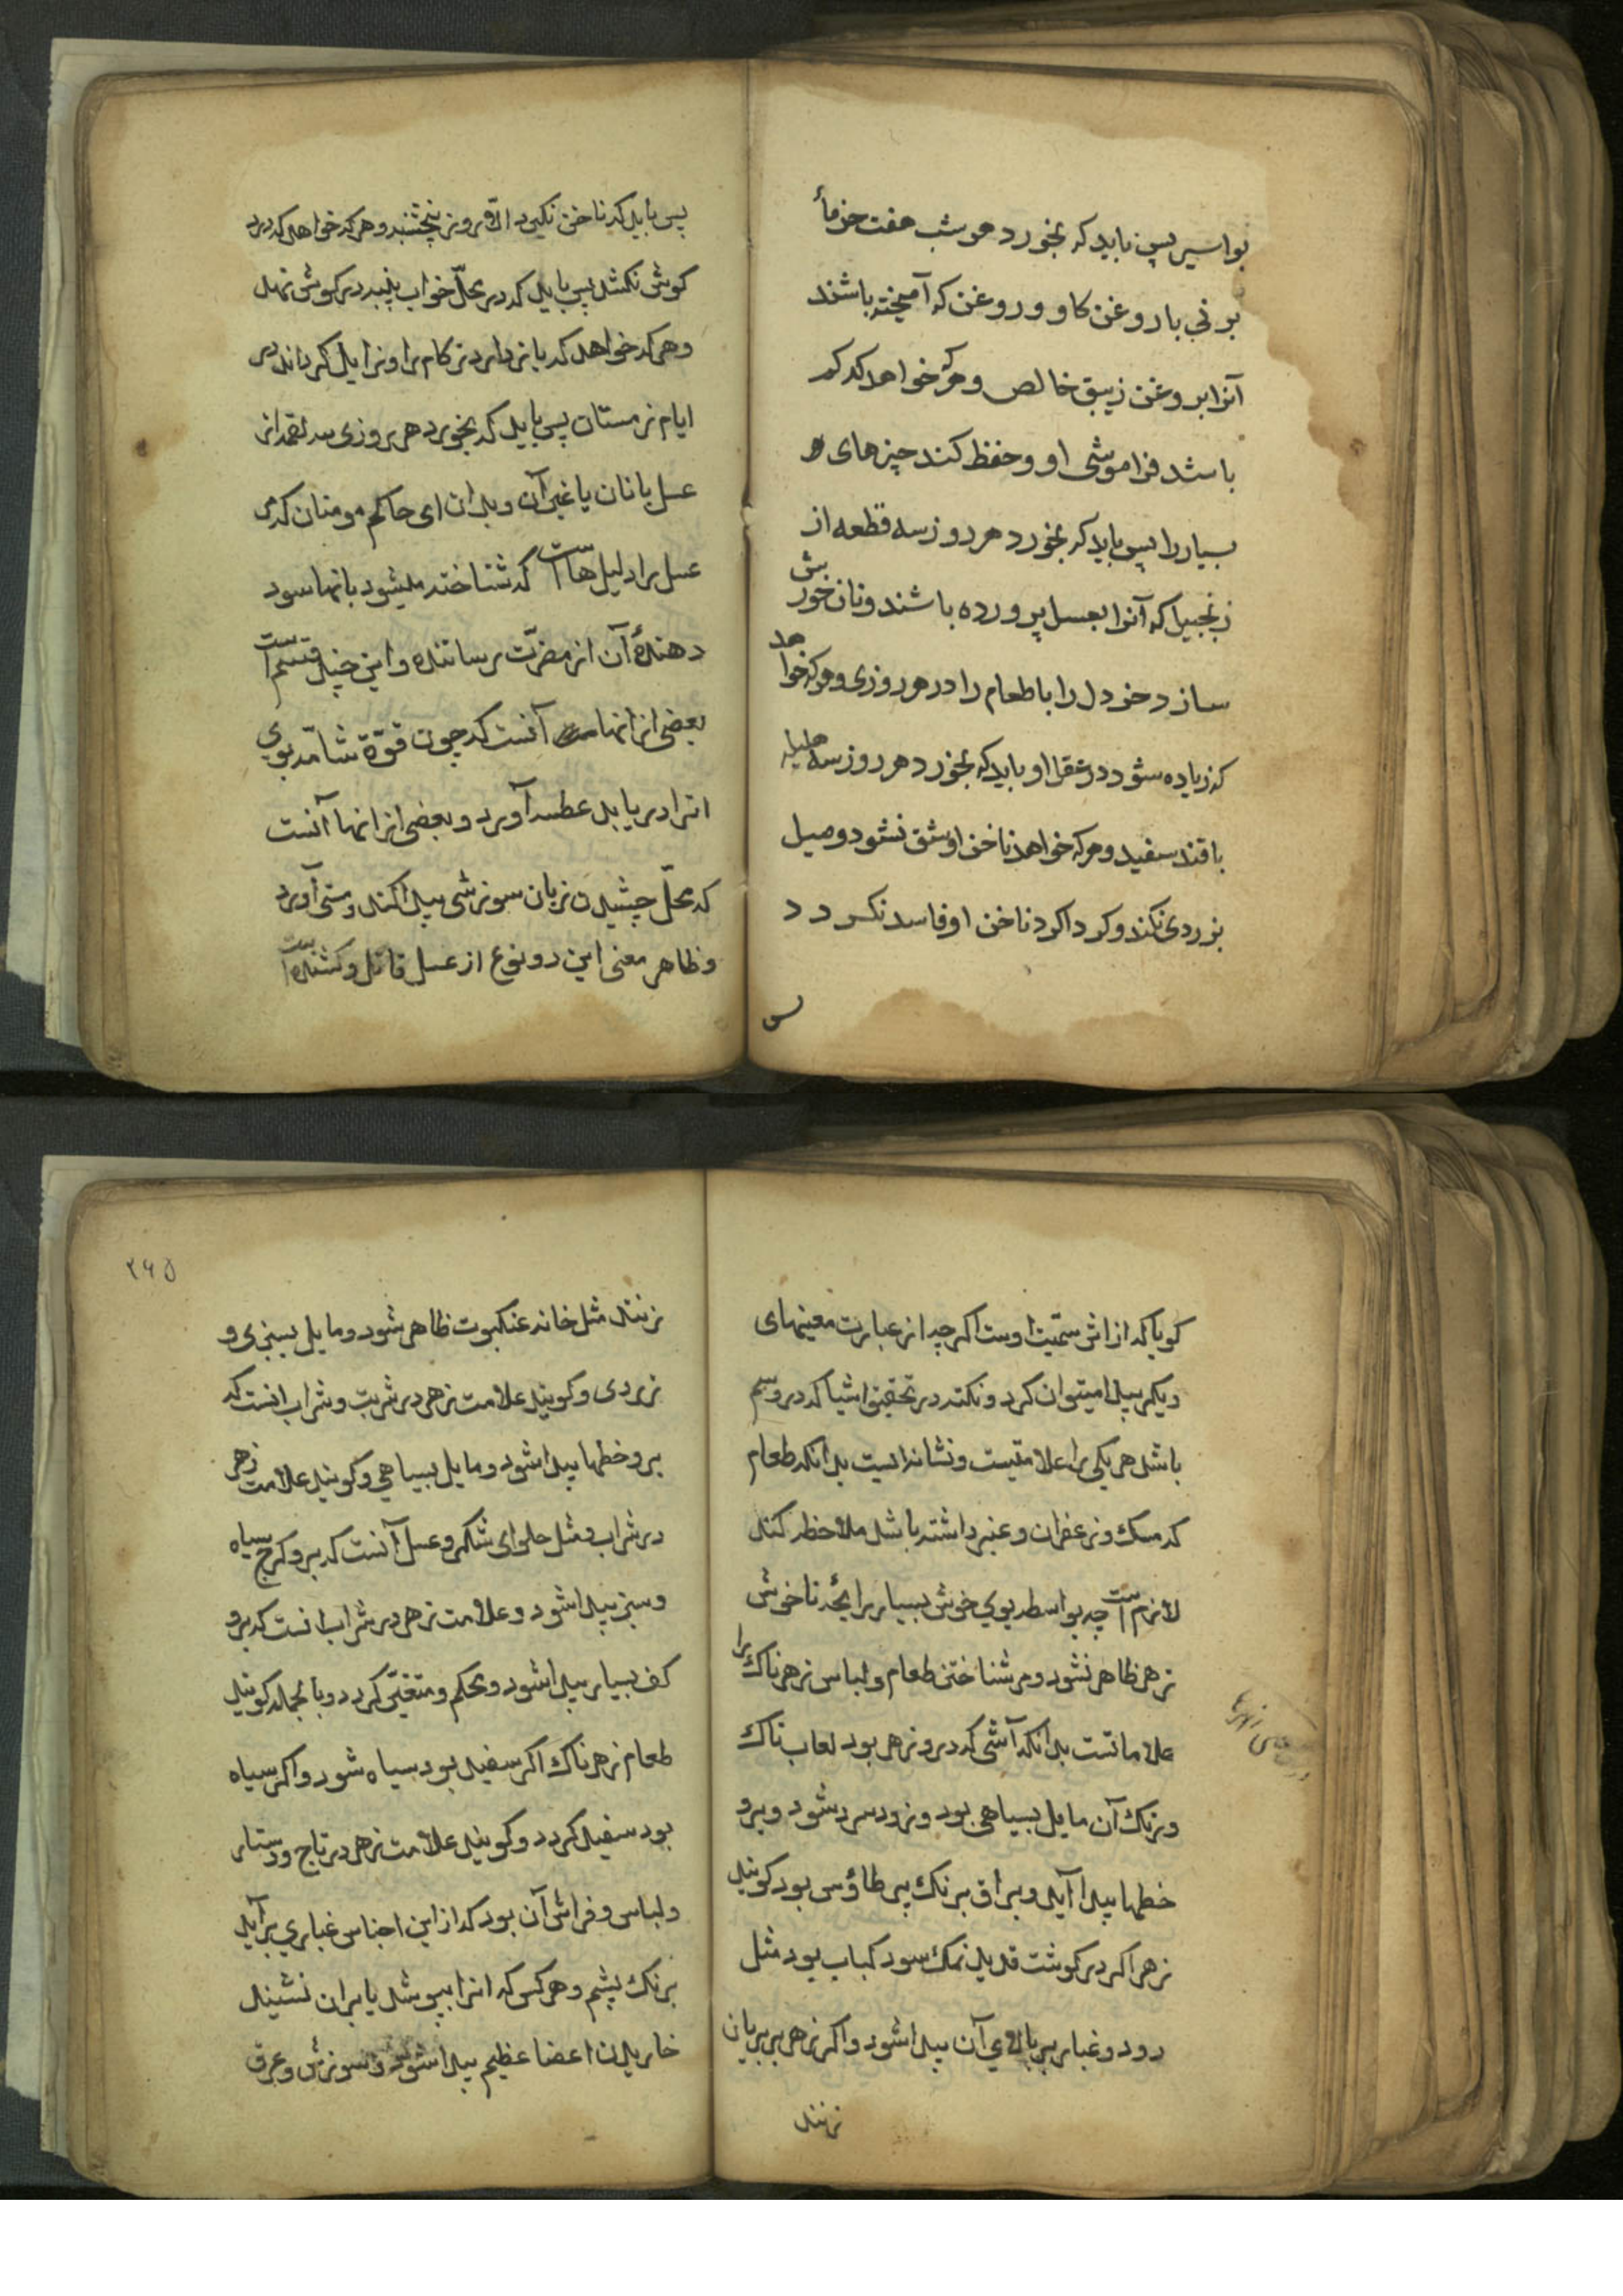 بواسیر پس باید که بخورد هر شب هفت خرماء
برنی با روغن کاو و روغن که آمیخته باشند
آنرا بروغن زیبق خالص و هرکه خواهد که کم
باشد فراموشی او و حفظ کند چیزهای
بسیار را پس باید که بخورد هر روز سه قطعه از
زنجبیل که آنرا بعسل پرورده باشند و نان خورش
سازد خردل را با طعام را در هر روزی و هرکه خواهد
که زیاده شود در عقل او باید که بخورد هر روز سه هلیله
با قند سفید و هرکه خواهد ناخن او شق نشود و میل
بزردی نکند و کرداکرد ناخن او فاسد نکردد
پس
پس باید که ناخن نکیرد الا روز پنجشنبه و هرکه خواهد که درد
کوش نکشد پس باید که در محلّ خواب پنبه در کوش نهد
و هرکه خواهد که بازدارد زکام را و زایل کرداند در
ایام زمستان پس باید که بخورد هر روزی سه لقمه از
عسل با نان یا غیر آن و بدان ای حاکم مومنان که
عسل را دلیل هاست که شناخته میشود بانها سود
دهندهٔ آن از مضرّت رساننده و این چند قسم است
بعضی از انها آنست که چون قوّة شامّه بوی
انرا دریابد عطسه آورد و بعضی از انها آنست
که محلّ چشیدن زبان سوزشی پیدا کند و مستی آورد
و ظاهر معنی این دو نوع از عسل قاتل و کشنده است
کویا که از اثر سمّیت اوست اکرچه از عبارت معنیهای
دیکر پیدا میتوان کرد و نکته در تحقیق اشیا که درو سم
باشد هر یکی را علامتیست و نشانه ایست بدانکه طعام
که مسک و زعفران و عنبر داشته باشد ملاحظه کند
لازم است چه بواسطه بوی خوش بسیار رایحهٔ ناخوش
زهر ظاهر نشود و مر شناختن طعام و لباس زهرناک را
علاماتست بدانکه آشی که درو زهر بود لعاب ناک
و رنک آن مایل بسیاهی بود و زود سرد شود و برو
خطها پیدا آید و براق برنک پر طاؤس بود کویند
زهر اکر در کوشت قدید نمک سود کباب بود مثل
رود و غبار بر بالای آن پیدا شود و اکر زهر بر بریان
زنند
۲۶۵
زنند مثل خانه عنکبوت ظاهر شود و مایل بسبزی و
زردی و کویند علامت زهر در شربت و شراب انست که
برو خطها پیدا شود و مایل بسیاهی و کویند علامت زهر
در شراب و مثل حلوای شکر و عسل آنست که برو کرج سیاه
و سبز پیدا شود و علامت زهر در شراب انست که برو
کف بسیار پیدا شود و محکم و متغیّر کردد و بالجمله کویند
طعام زهرناک اکر سفید بود سیاه شود و اکر سیاه
بود سفید کردد و کویند علامت زهر در تاج و دستار
و لباس و فراش آن بود که از این اجناس غباری برآید
برنک پشم و هر کس که انرا بپوشد یا بران نشیند
خاریدن اعضا عظیم پیدا شود و سوزش و عرق